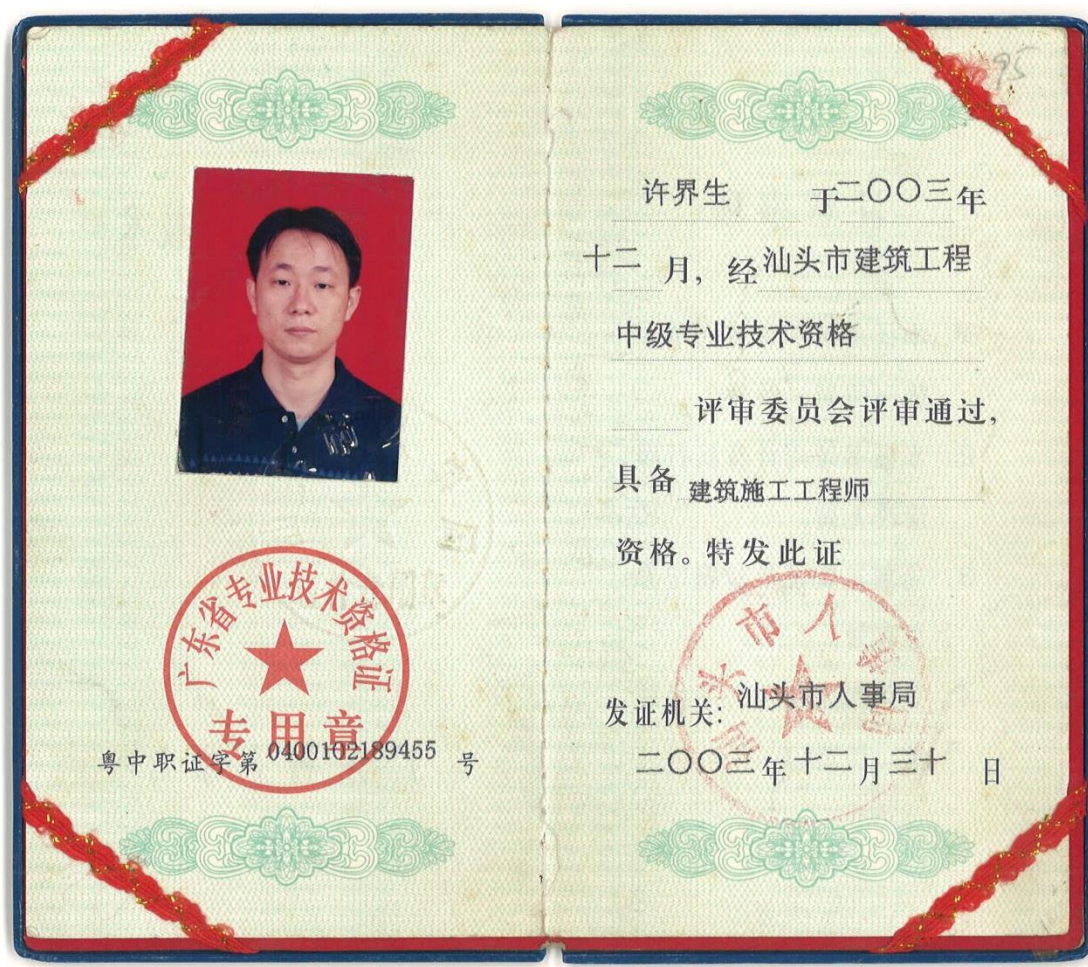 广东省专业技术资格证
专用章
粤中职证字第0400102189455号
95
许界生 于二〇〇三年
十二月，经汕头市建筑工程
中级专业技术资格
评审委员会评审通过，
具备 建筑施工工程师
资格。特发此证
汕头市人事局
发证机关：汕头市人事局
二〇〇三年十二月三十日